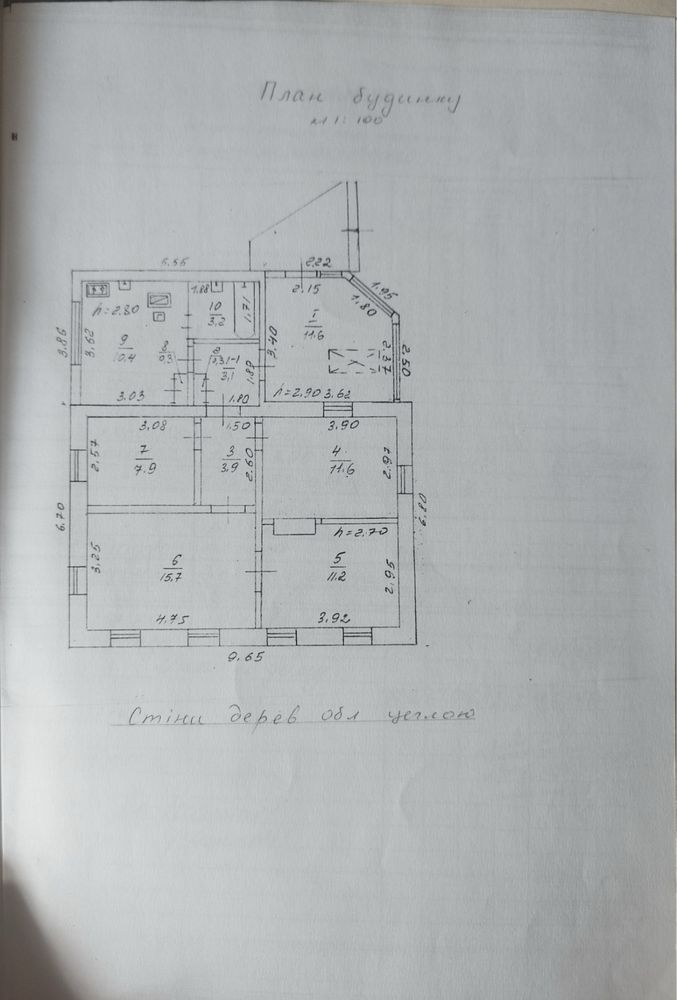 План будинку
М 1:100
2.22
2.15
1.95
1.80
h=2.80
1.88
10
3.2
1.71
I
11.6
3.86
3.62
9
10.4
3.40
2.37
2.50
1-1
3.1
1.89
3.03
1.80
h=2.90 3.62
3.08
1.50
3.90
2.57
7
7.9
3
3.9
2.60
4
11.6
2.97
6.70
6.80
h=2.70
3.25
6
15.7
5
11.2
2.95
4.75
3.92
9.65
Стіни дерев обл цеглою